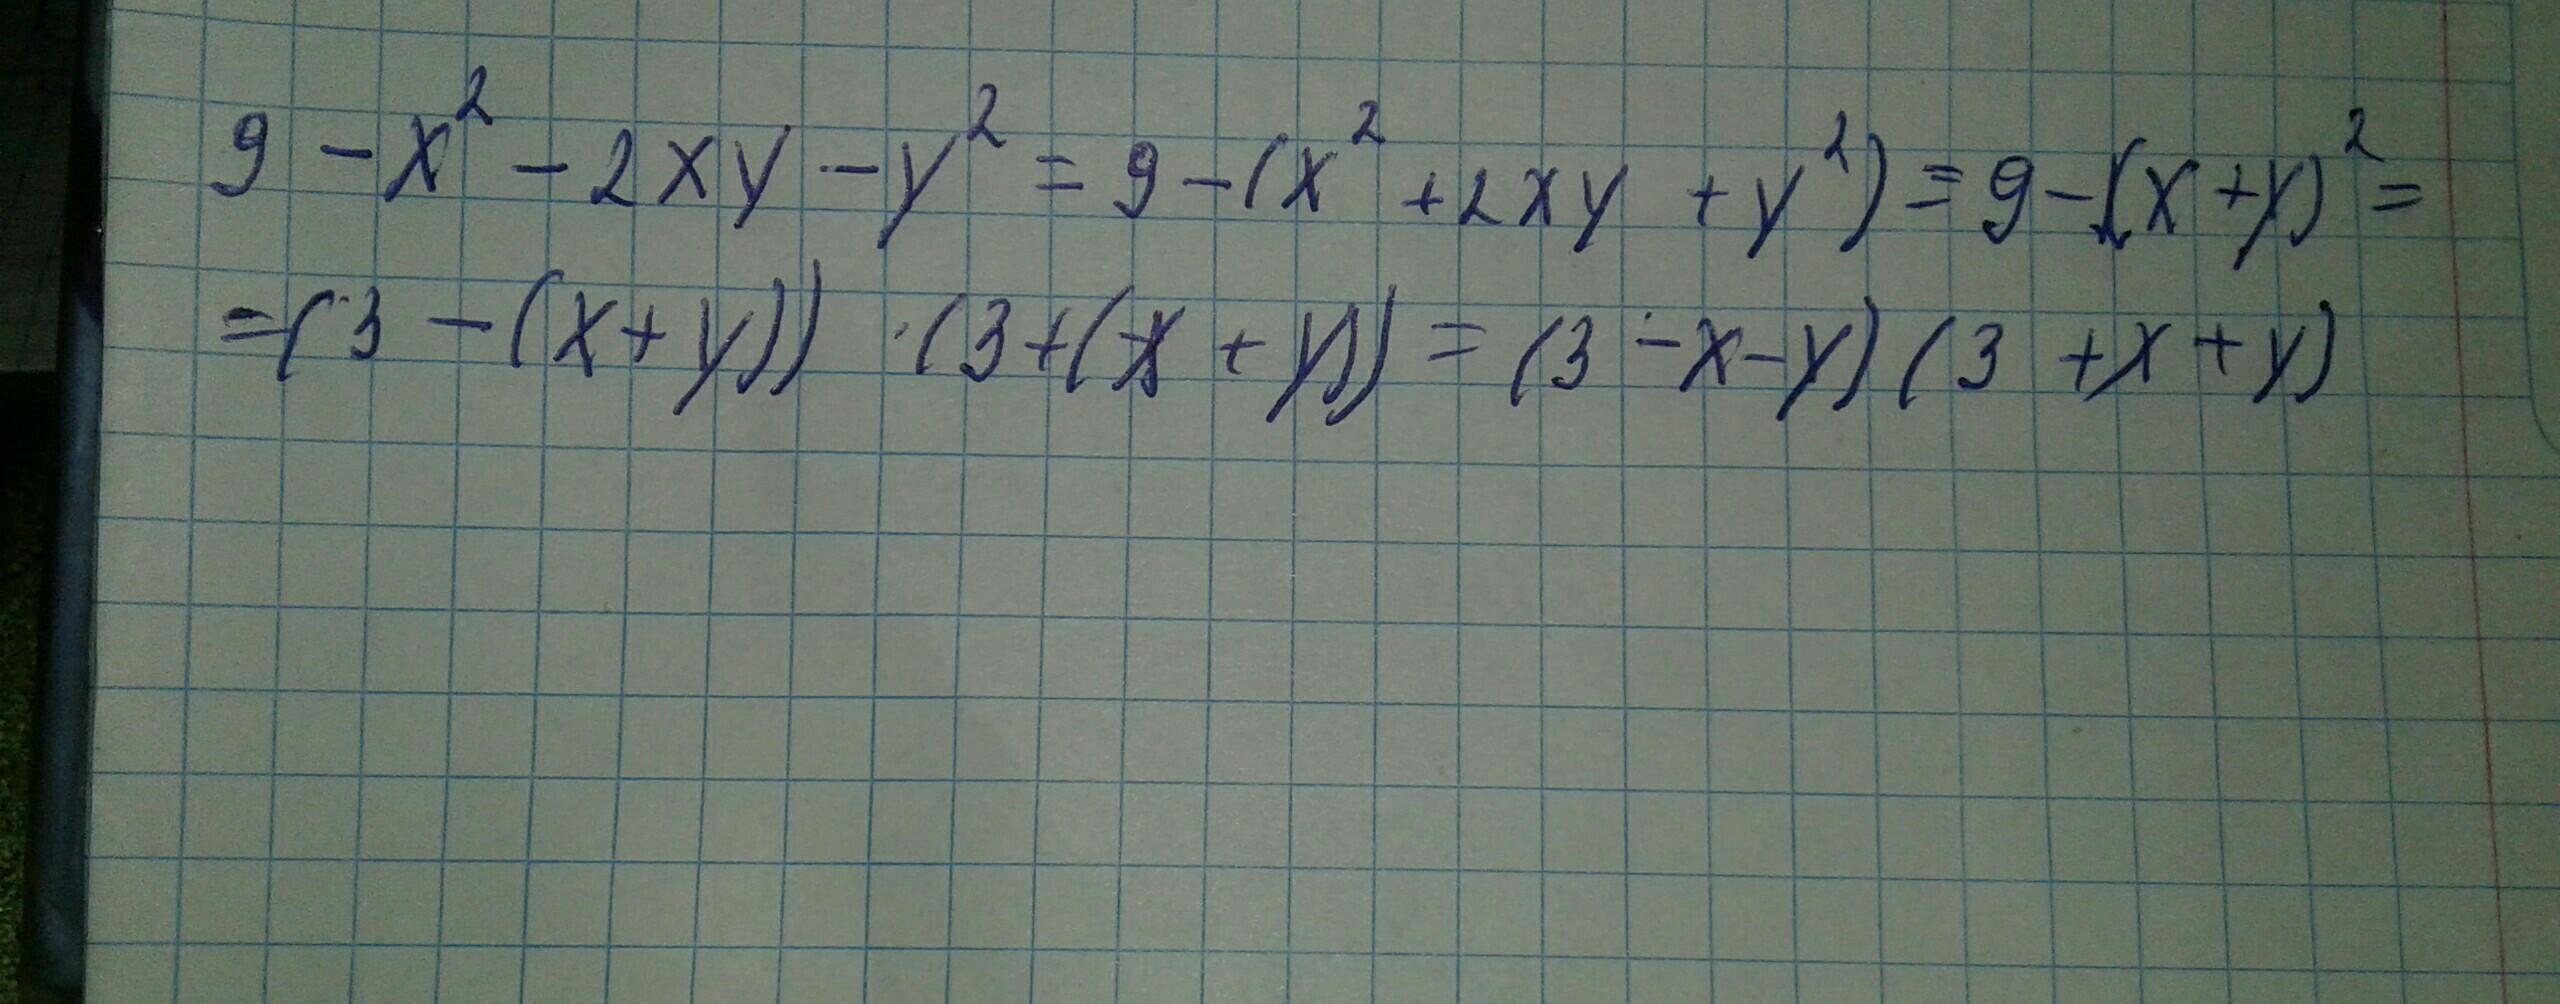 9 - x² - 2xy - y² = 9 - (x² + 2xy + y²) = 9 - (x + y)² =
= (3 - (x + y)) · (3 + (x + y)) = (3 - x - y) (3 + x + y)